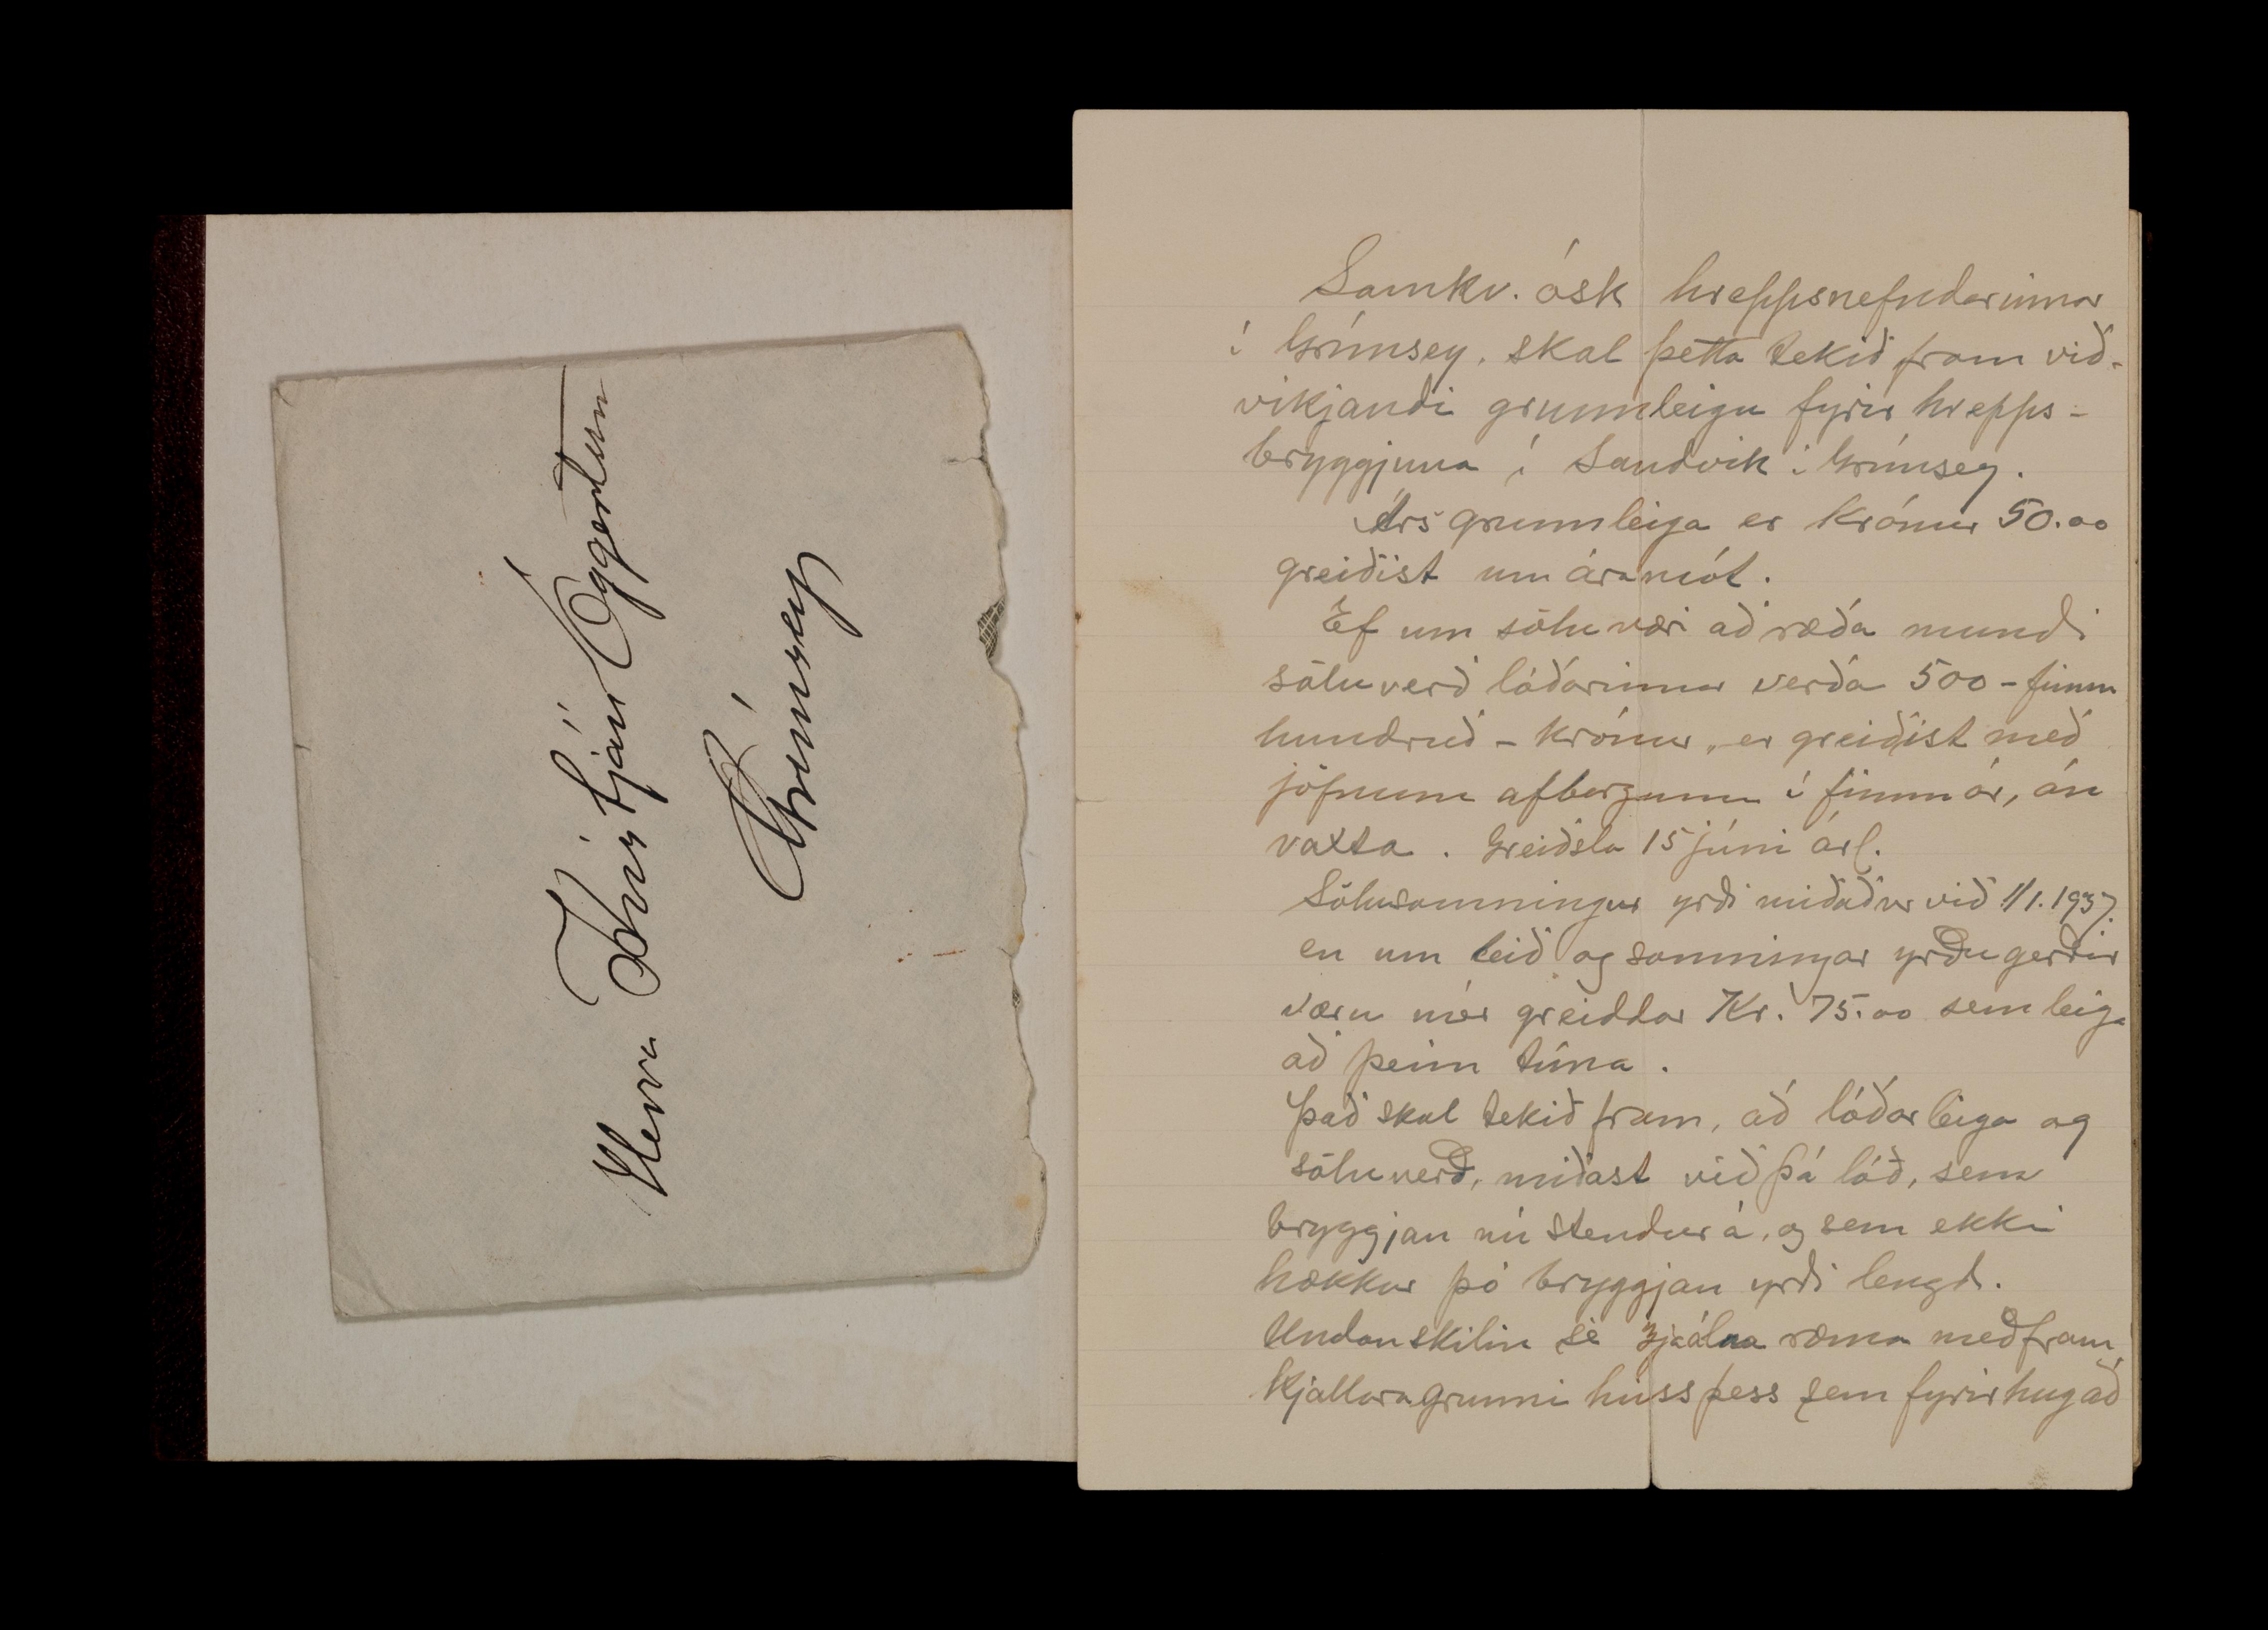 Herra Kristján Eggertsson
Grímsey
Samkv. ósk hreppsnefndarinnar
í Grímsey, skal þetta tekið fram við-
víkjandi grunnleigu fyrir hrepps-
bryggjuna í Sandvík í Grímsey.
Árs grunnleiga er krónur 50.00
greiðist um áramót.
Ef um sölu væri að ræða mundi
söluverð lóðarinnar verða 500 - fimm
hundruð - krónur, er greiðist með
jöfnum afborgunum í fimm ár, án
vaxta. Greiðsla 15 júni árl.
Sölusamningur yrði miðaður við 1/1. 1937.
en um leið og samningar yrðu gerðir
væru mér greiddar Kr. 75.00 sem leiga
að þeim tíma.
Það skal tekið fram, að lóðarleiga og
söluverð, miðast við þá lóð, sem
bryggjan nú stendur á, og sem ekki
hækkar þó bryggjan yrði lengd.
Undanskilin sé 3ja álna ræma meðfram
kjallaragrunni húss þess sem fyrirhugað